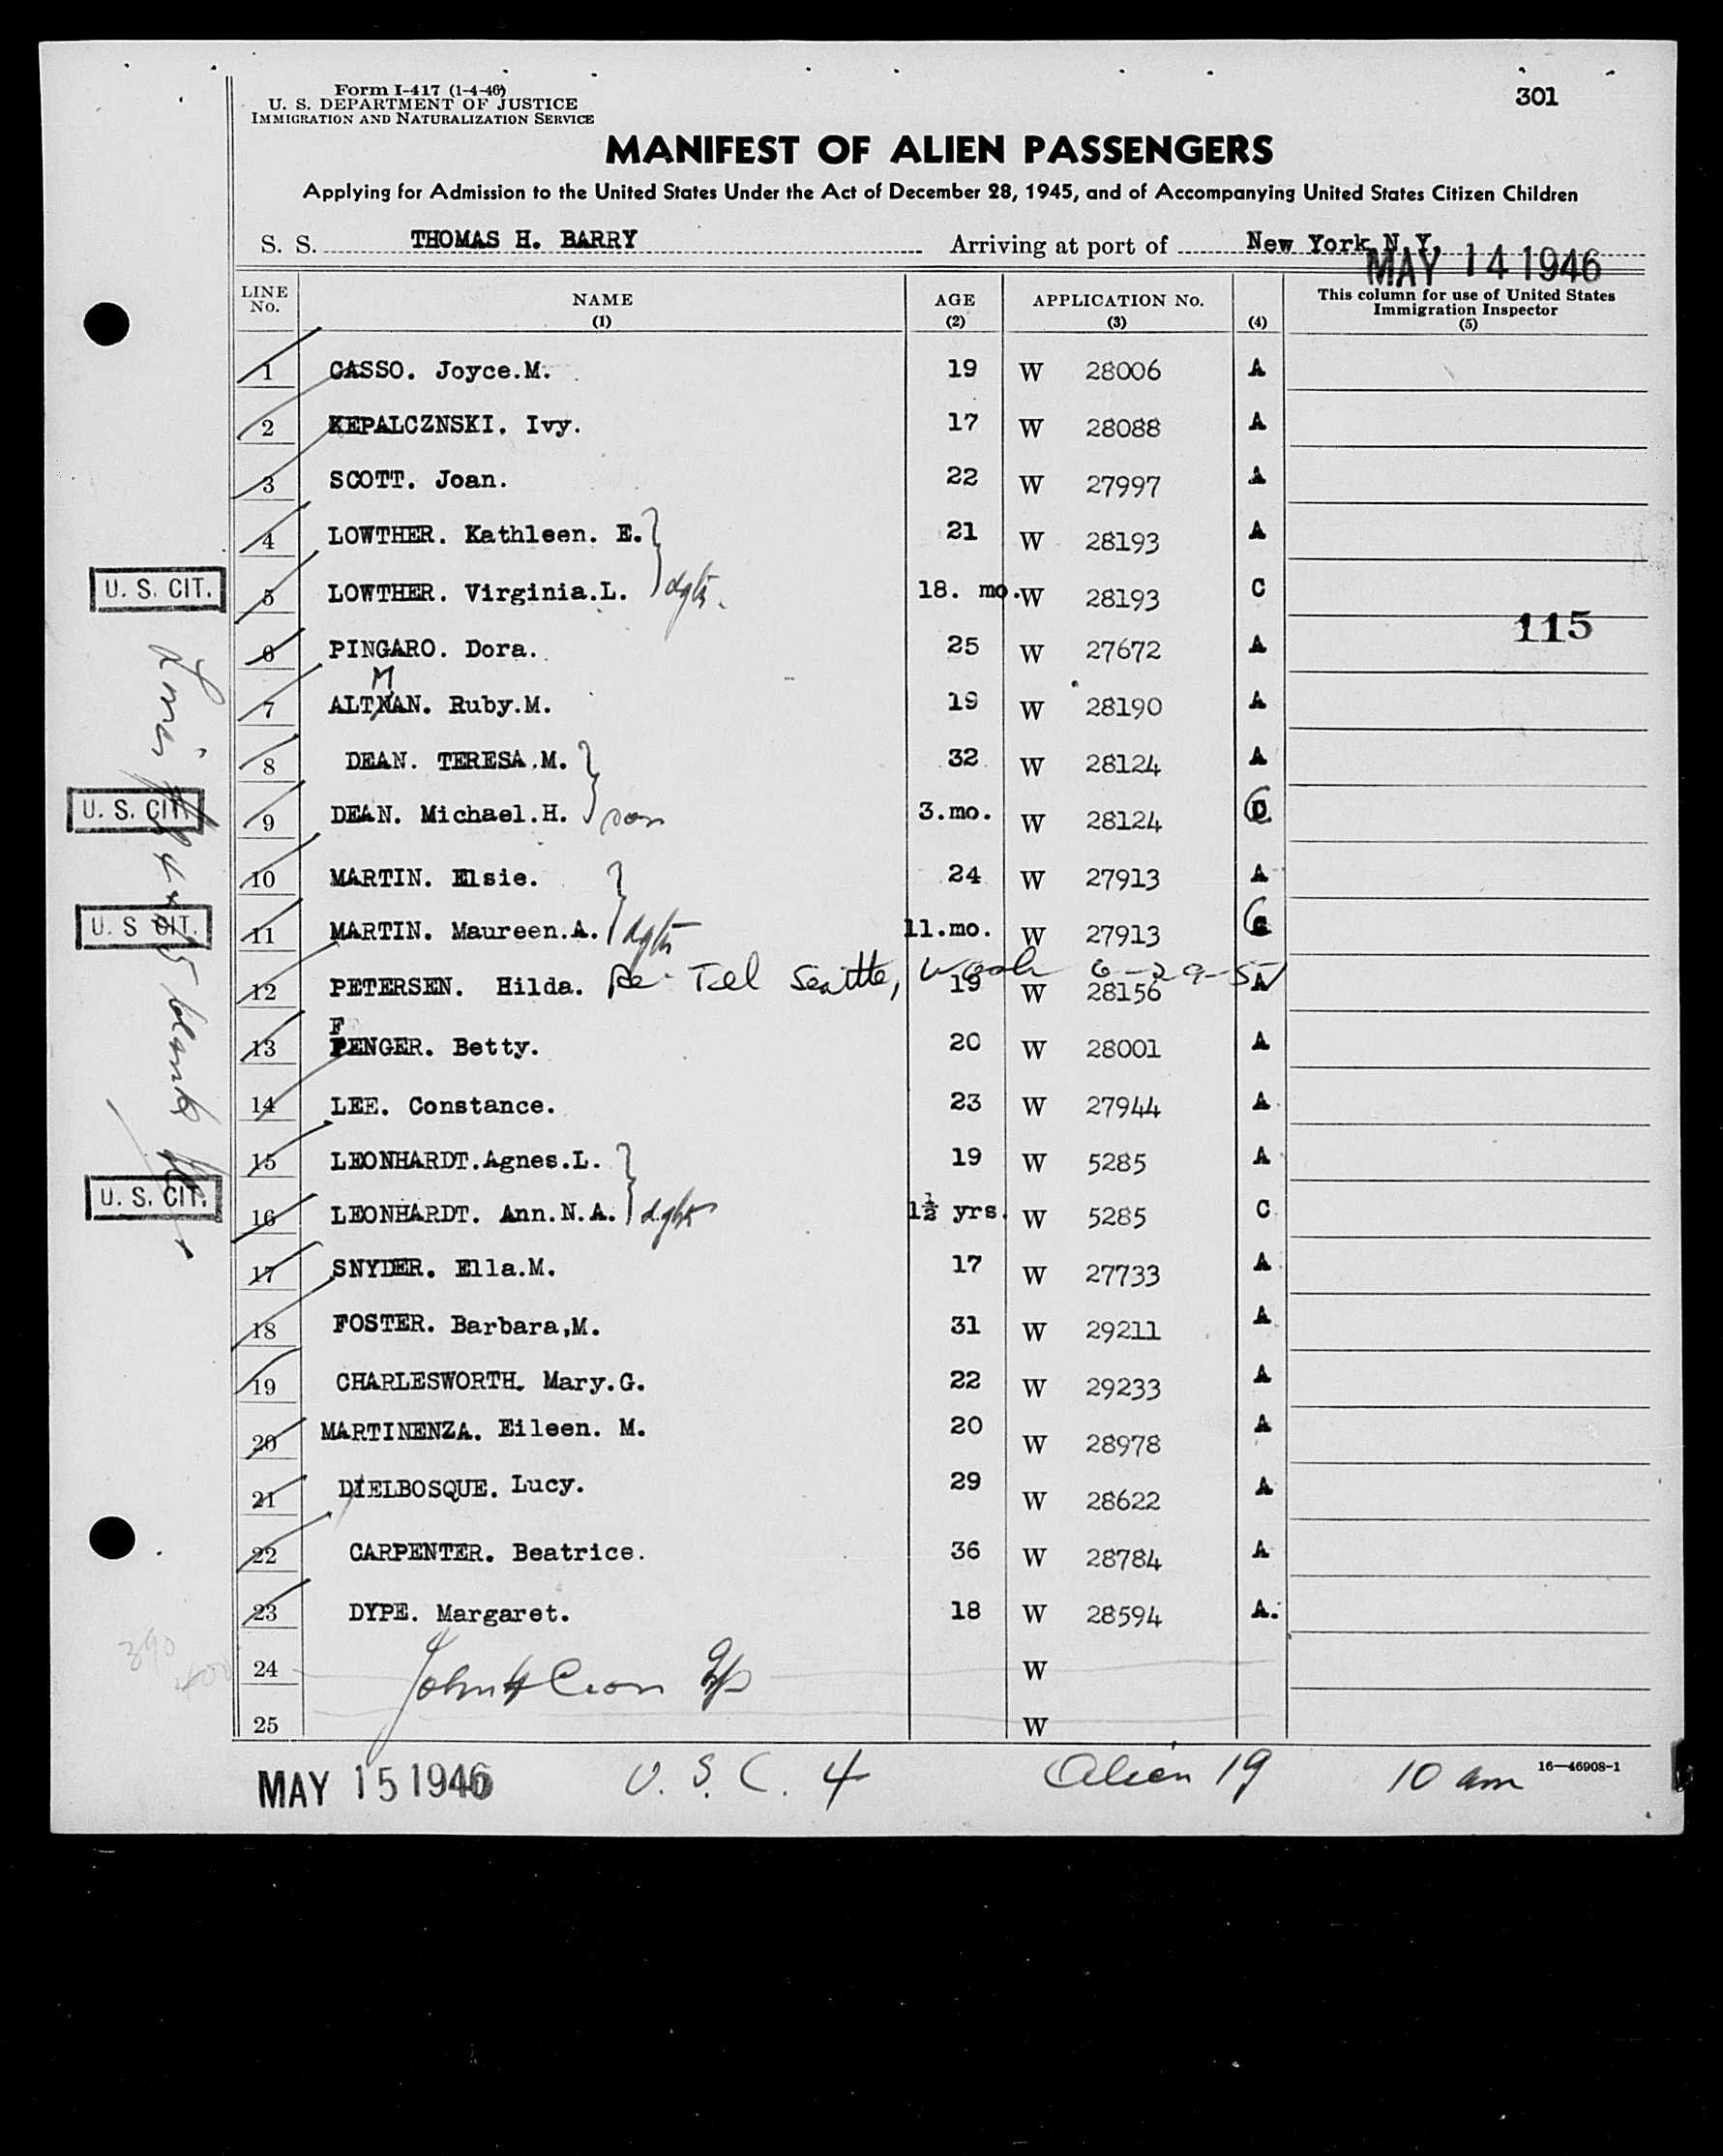 Form I-417 (1-4-46)
U. S. DEPARTMENT OF JUSTICE
IMMIGRATION AND NATURALIZATION SERVICE
301
MANIFEST OF ALIEN PASSENGERS
Applying for Admission to the United States Under the Act of December 28, 1945, and of Accompanying United States Citizen Children
S. S. THOMAS H. BARRY Arriving at port of New York N.Y.
MAY 14 1946
LINE No. NAME (1) AGE (2) APPLICATION No. (3) (4) This column for use of United States Immigration Inspector (5)
1 CASSO. Joyce.M. 19 W 28006 A
2 KEPALCZNSKI. Ivy. 17 W 28088 A
3 SCOTT. Joan. 22 W 27997 A
4 LOWTHER. Kathleen. E. 21 W 28193 A
U. S. CIT. 5 LOWTHER. Virginia.L. dgtr. 18. mo. W 28193 C
115
6 PINGARO. Dora. 25 W 27672 A
M
7 ALTNAN. Ruby.M. 19 W 28190 A
8 DEAN. TERESA.M. 32 W 28124 A
U. S. CIT. 9 DEAN. Michael.H. son 3.mo. W 28124 C
10 MARTIN. Elsie. 24 W 27913 A
U. S. CIT. 11 MARTIN. Maureen.A. dgtr 11.mo. W 27913 C
12 PETERSEN. Hilda. Re Tel Seattle, Wash 6-29-51 19 W 28156 A
F
13 PENGER. Betty. 20 W 28001 A
14 LEE. Constance. 23 W 27944 A
15 LEONHARDT.Agnes.L. 19 W 5285 A
U. S. CIT. 16 LEONHARDT. Ann.N.A. dghtr 1½ yrs. W 5285 C
17 SNYDER. Ella.M. 17 W 27733 A
18 FOSTER. Barbara,M. 31 W 29211 A
19 CHARLESWORTH. Mary.G. 22 W 29233 A
20 MARTINENZA. Eileen. M. 20 W 28978 A
21 DIELBOSQUE. Lucy. 29 W 28622 A
22 CARPENTER. Beatrice. 36 W 28784 A
23 DYPE. Margaret. 18 W 28594 A.
24 John H Cron W
25 W
Lines 24 & 25 blank
MAY 15 1946 U. S. C. 4 Alien 19 10 am 16—46908-1